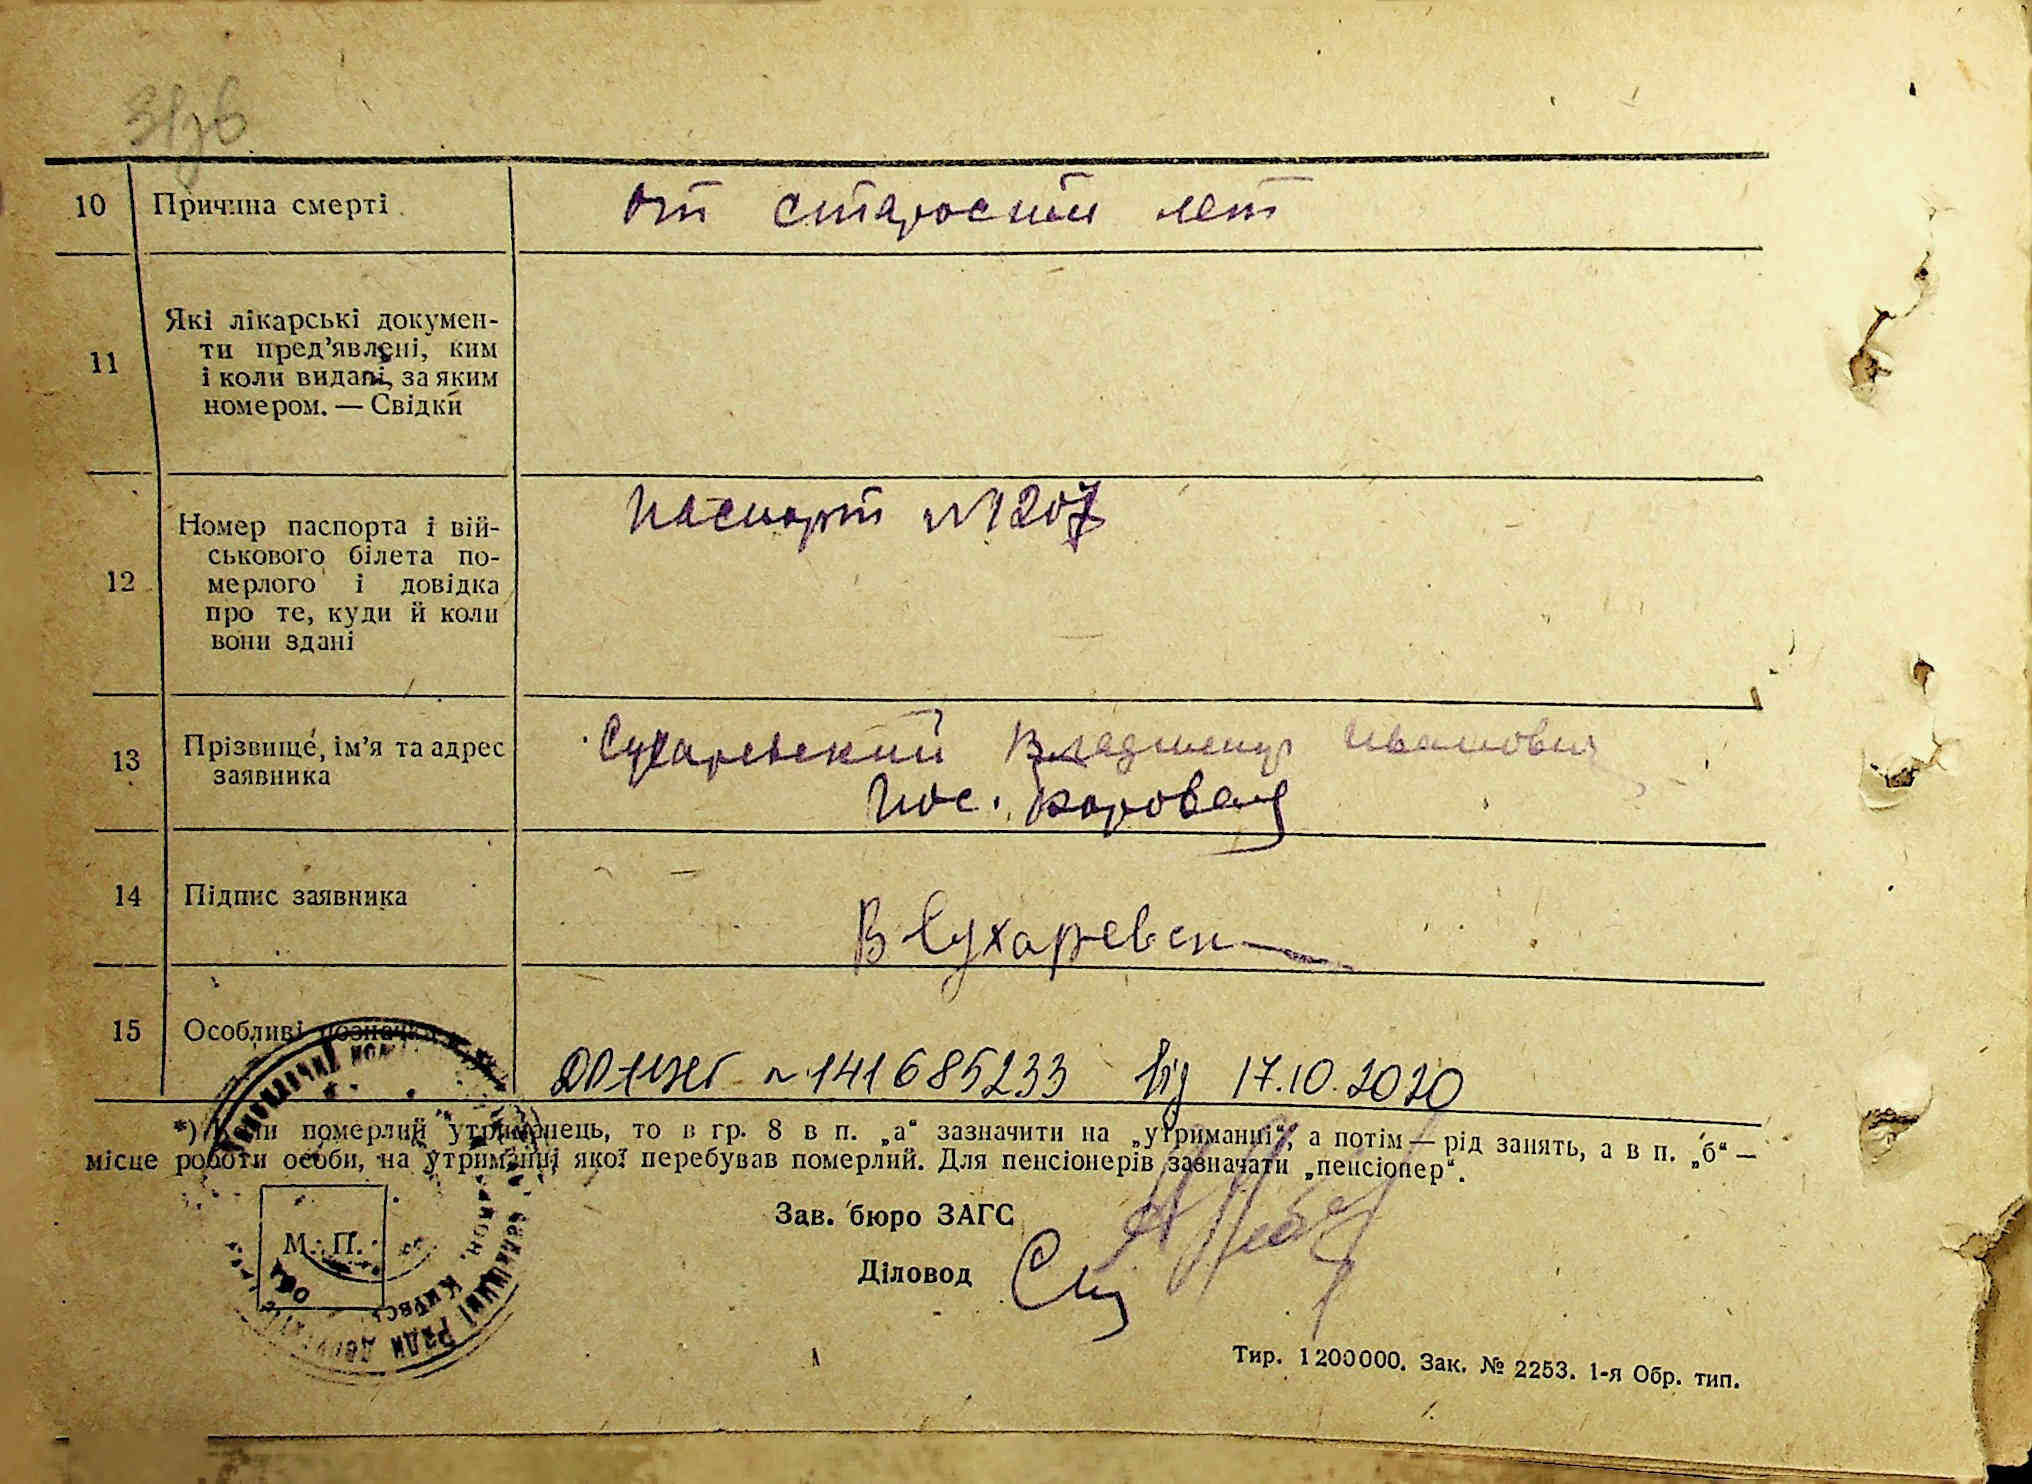 10 Причина смерті от старости лет
11 Які лікарські докумен-
ти пред'явлені, ким
і коли видані, за яким
номером. — Свідки
12 Номер паспорта і вій-
ськового білета по-
мерлого і довідка
про те, куди й коли
вони здані
паспорт №1207
13 Прізвище, ім'я та адрес
заявника
Сухаревский Владимир Иванович
пос.
14 Підпис заявника
В Сухаревск
15 Особливі позначки
№ 141685233 від 17.10.2020
*) Коли померлий утриманець, то в гр. 8 в п. „а“ зазначити на „утриманні“, а потім — рід занять, а в п. „б“ —
місце роботи особи, на утриманні якої перебував померлий. Для пенсіонерів зазначати „пенсіонер“.
Зав. бюро ЗАГС
М. П.
Діловод
Тир. 1200000. Зак. № 2253. 1-я Обр. тип.